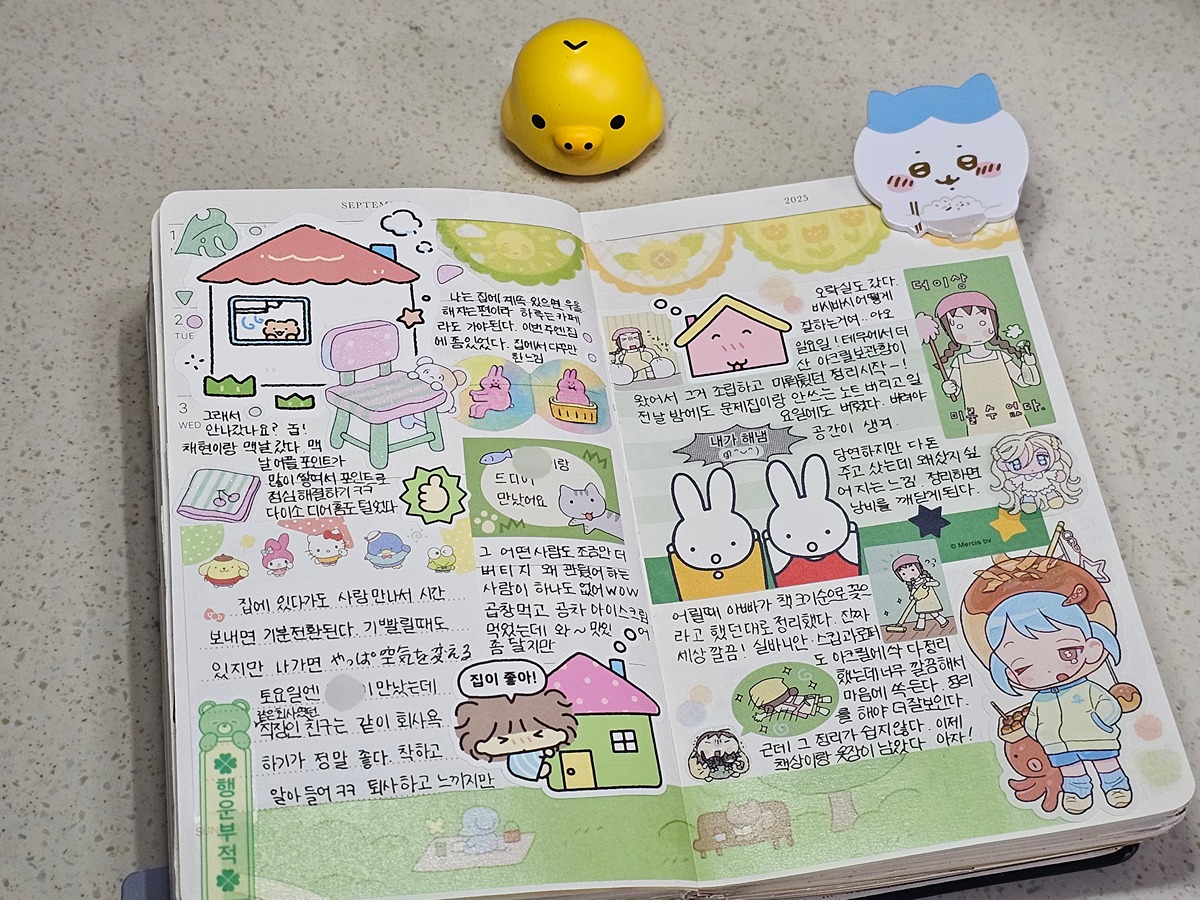 SEPTEM
2025
1
2
TUE
3
WED
나는 집에 계속 있으면 우울
해지는 편이라 하루는 카페
라도 가야된다. 이번주엔 집
에 좀 있었다. 집에서 다꾸만
한 느낌
그래서
안나갔나요? 놉!
채현이랑 맥날 갔다. 맥
날 어플 포인트가
많이 쌓여서 포인트로
점심 해결하기 ㅋㅋ
다이소 디어폼도 털었다
이랑
드디어
만났어요
그 어떤 사람도 조금만 더
버티지 왜 관뒀어 하는
사람이 하나도 없어 wow
곱창먹고 공차 아이스크림
먹었는데 와~ 맛있
어
좀 달지만
집에 있다가도 사람 만나서 시간
보내면 기분전환된다. 기빨릴때도
있지만 나가면 やっぱ空気を変える
토요일엔 이 만났는데
같은 회사였던
직장인 친구는 같이 회사욕
하기가 정말 좋다. 착하고
알아들어 ㅋㅋ 퇴사하고 느끼지만
집이 좋아!
행운부적
SUN
오락실도 갔다.
바시바시 어떻게
잘하는거여.. 아오
일요일! 테무에서 더
산 아크릴보관함이
왔어서 그거 조립하고 미뤄뒀던 정리시작~!
전날 밤에도 문제집이랑 안쓰는 노트 버리고 일
요일에도 버렸다. 버려야
공간이 생겨.
더이상
미룰수 없다.
내가 해냄
당연하지만 다 돈
주고 샀는데 왜샀지 싶
어지는 느낌. 정리하면
낭비를 깨닫게 된다.
© Mercis bv
어릴때 아빠가 책 크기순으로 꽂으
라고 했던대로 정리했다. 진짜
세상 깔끔! 실바니안 스킵과로터
도 아크릴에 싹 다 정리
했는데 너무 깔끔해서
마음에 쏙 든다. 정리
를 해야 더 잘보인다.
근데 그 정리가 쉽지않다. 이제
책상이랑 옷장이 남았다. 아자!